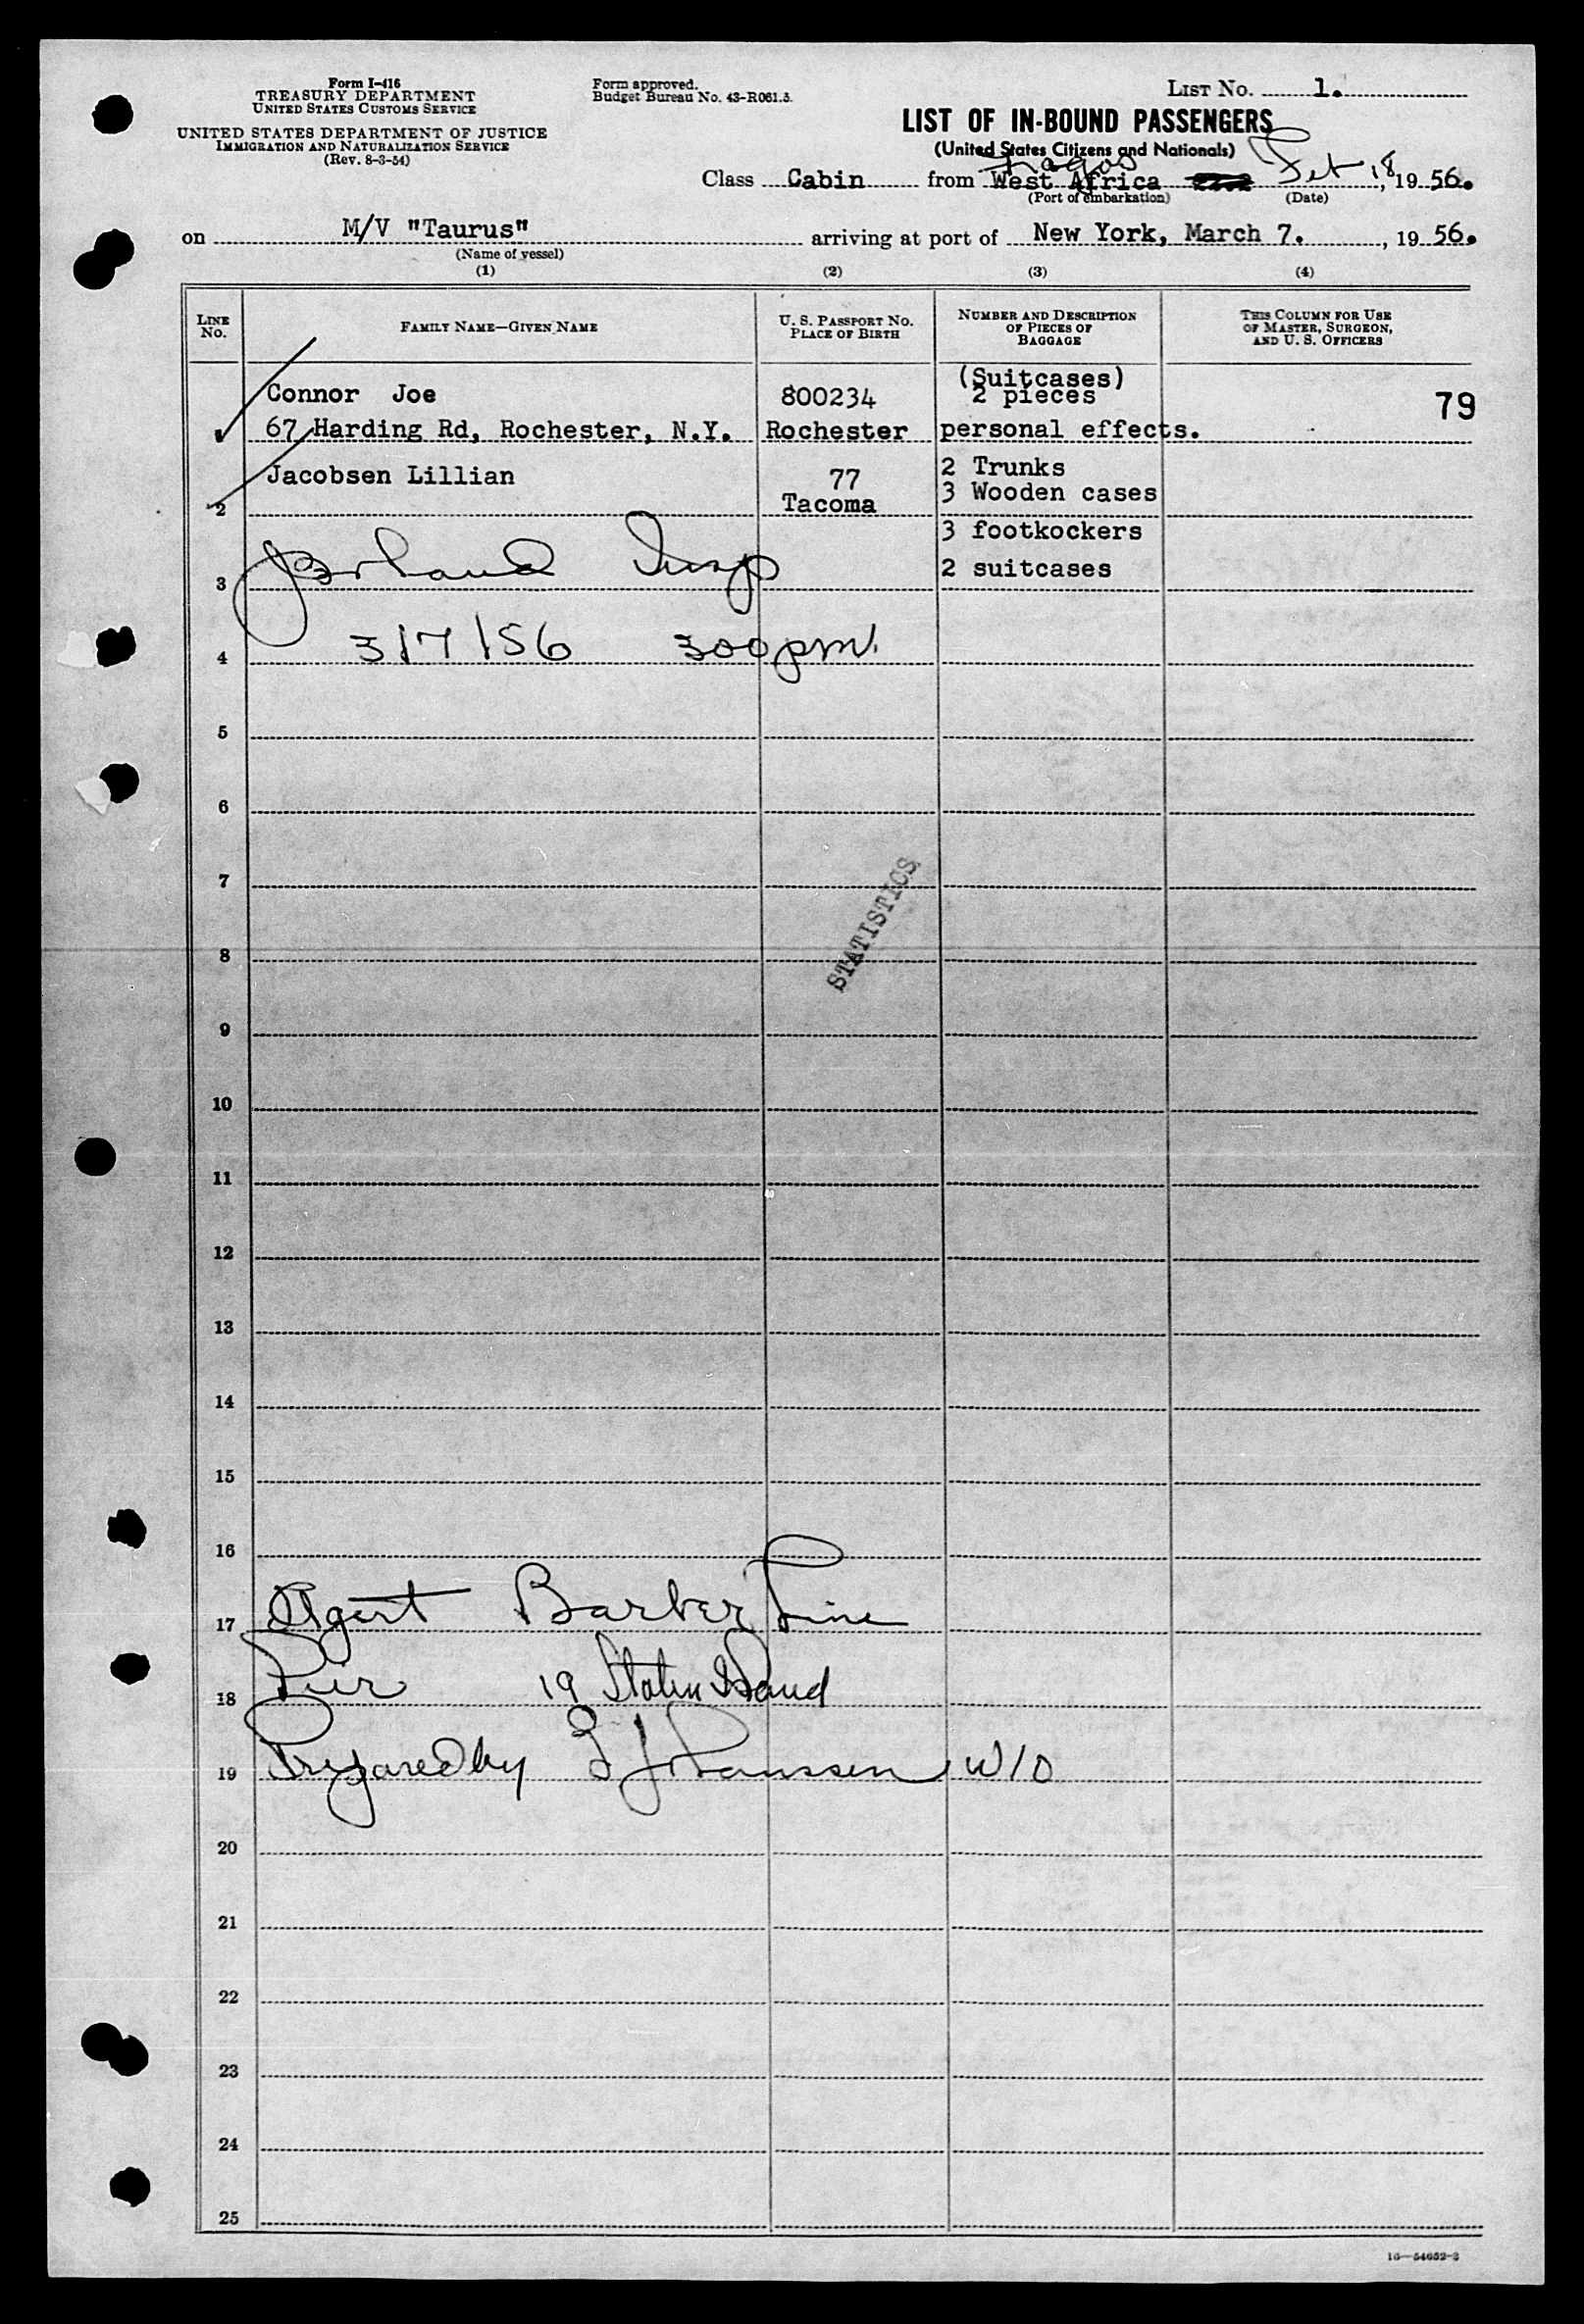 Form I-416
TREASURY DEPARTMENT
UNITED STATES CUSTOMS SERVICE
UNITED STATES DEPARTMENT OF JUSTICE
IMMIGRATION AND NATURALIZATION SERVICE
(Rev. 8-3-54)
Form approved.
Budget Bureau No. 43-R061.5.
LIST No. 1.
LIST OF IN-BOUND PASSENGERS
(United States Citizens and Nationals)
Lagos
Class Cabin from West Africa Feb 18, 1956.
(Port of embarkation) (Date)
on M/V "Taurus" arriving at port of New York, March 7., 1956.
(Name of vessel)
(1) (2) (3) (4)
LINE No. FAMILY NAME—GIVEN NAME U. S. PASSPORT No. PLACE OF BIRTH NUMBER AND DESCRIPTION OF PIECES OF BAGGAGE THIS COLUMN FOR USE OF MASTER, SURGEON, AND U. S. OFFICERS
(Suitcases)
Connor Joe 800234 2 pieces 79
67 Harding Rd, Rochester, N.Y. Rochester personal effects.
Jacobsen Lillian 77 2 Trunks
3 Wooden cases
2 Tacoma
3 footkockers
3 Insp 2 suitcases
4 3/7/56 300pm
5
6
7
STATISTICS
8
9
10
11
12
13
14
15
16
17 Agent Barber Line
18 Pier 19 Staten Island
19 Prepared by W/O
20
21
22
23
24
25
16—54652-3